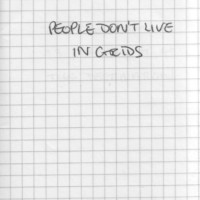 PEOPLE DON'T LIVE
IN GRIDS